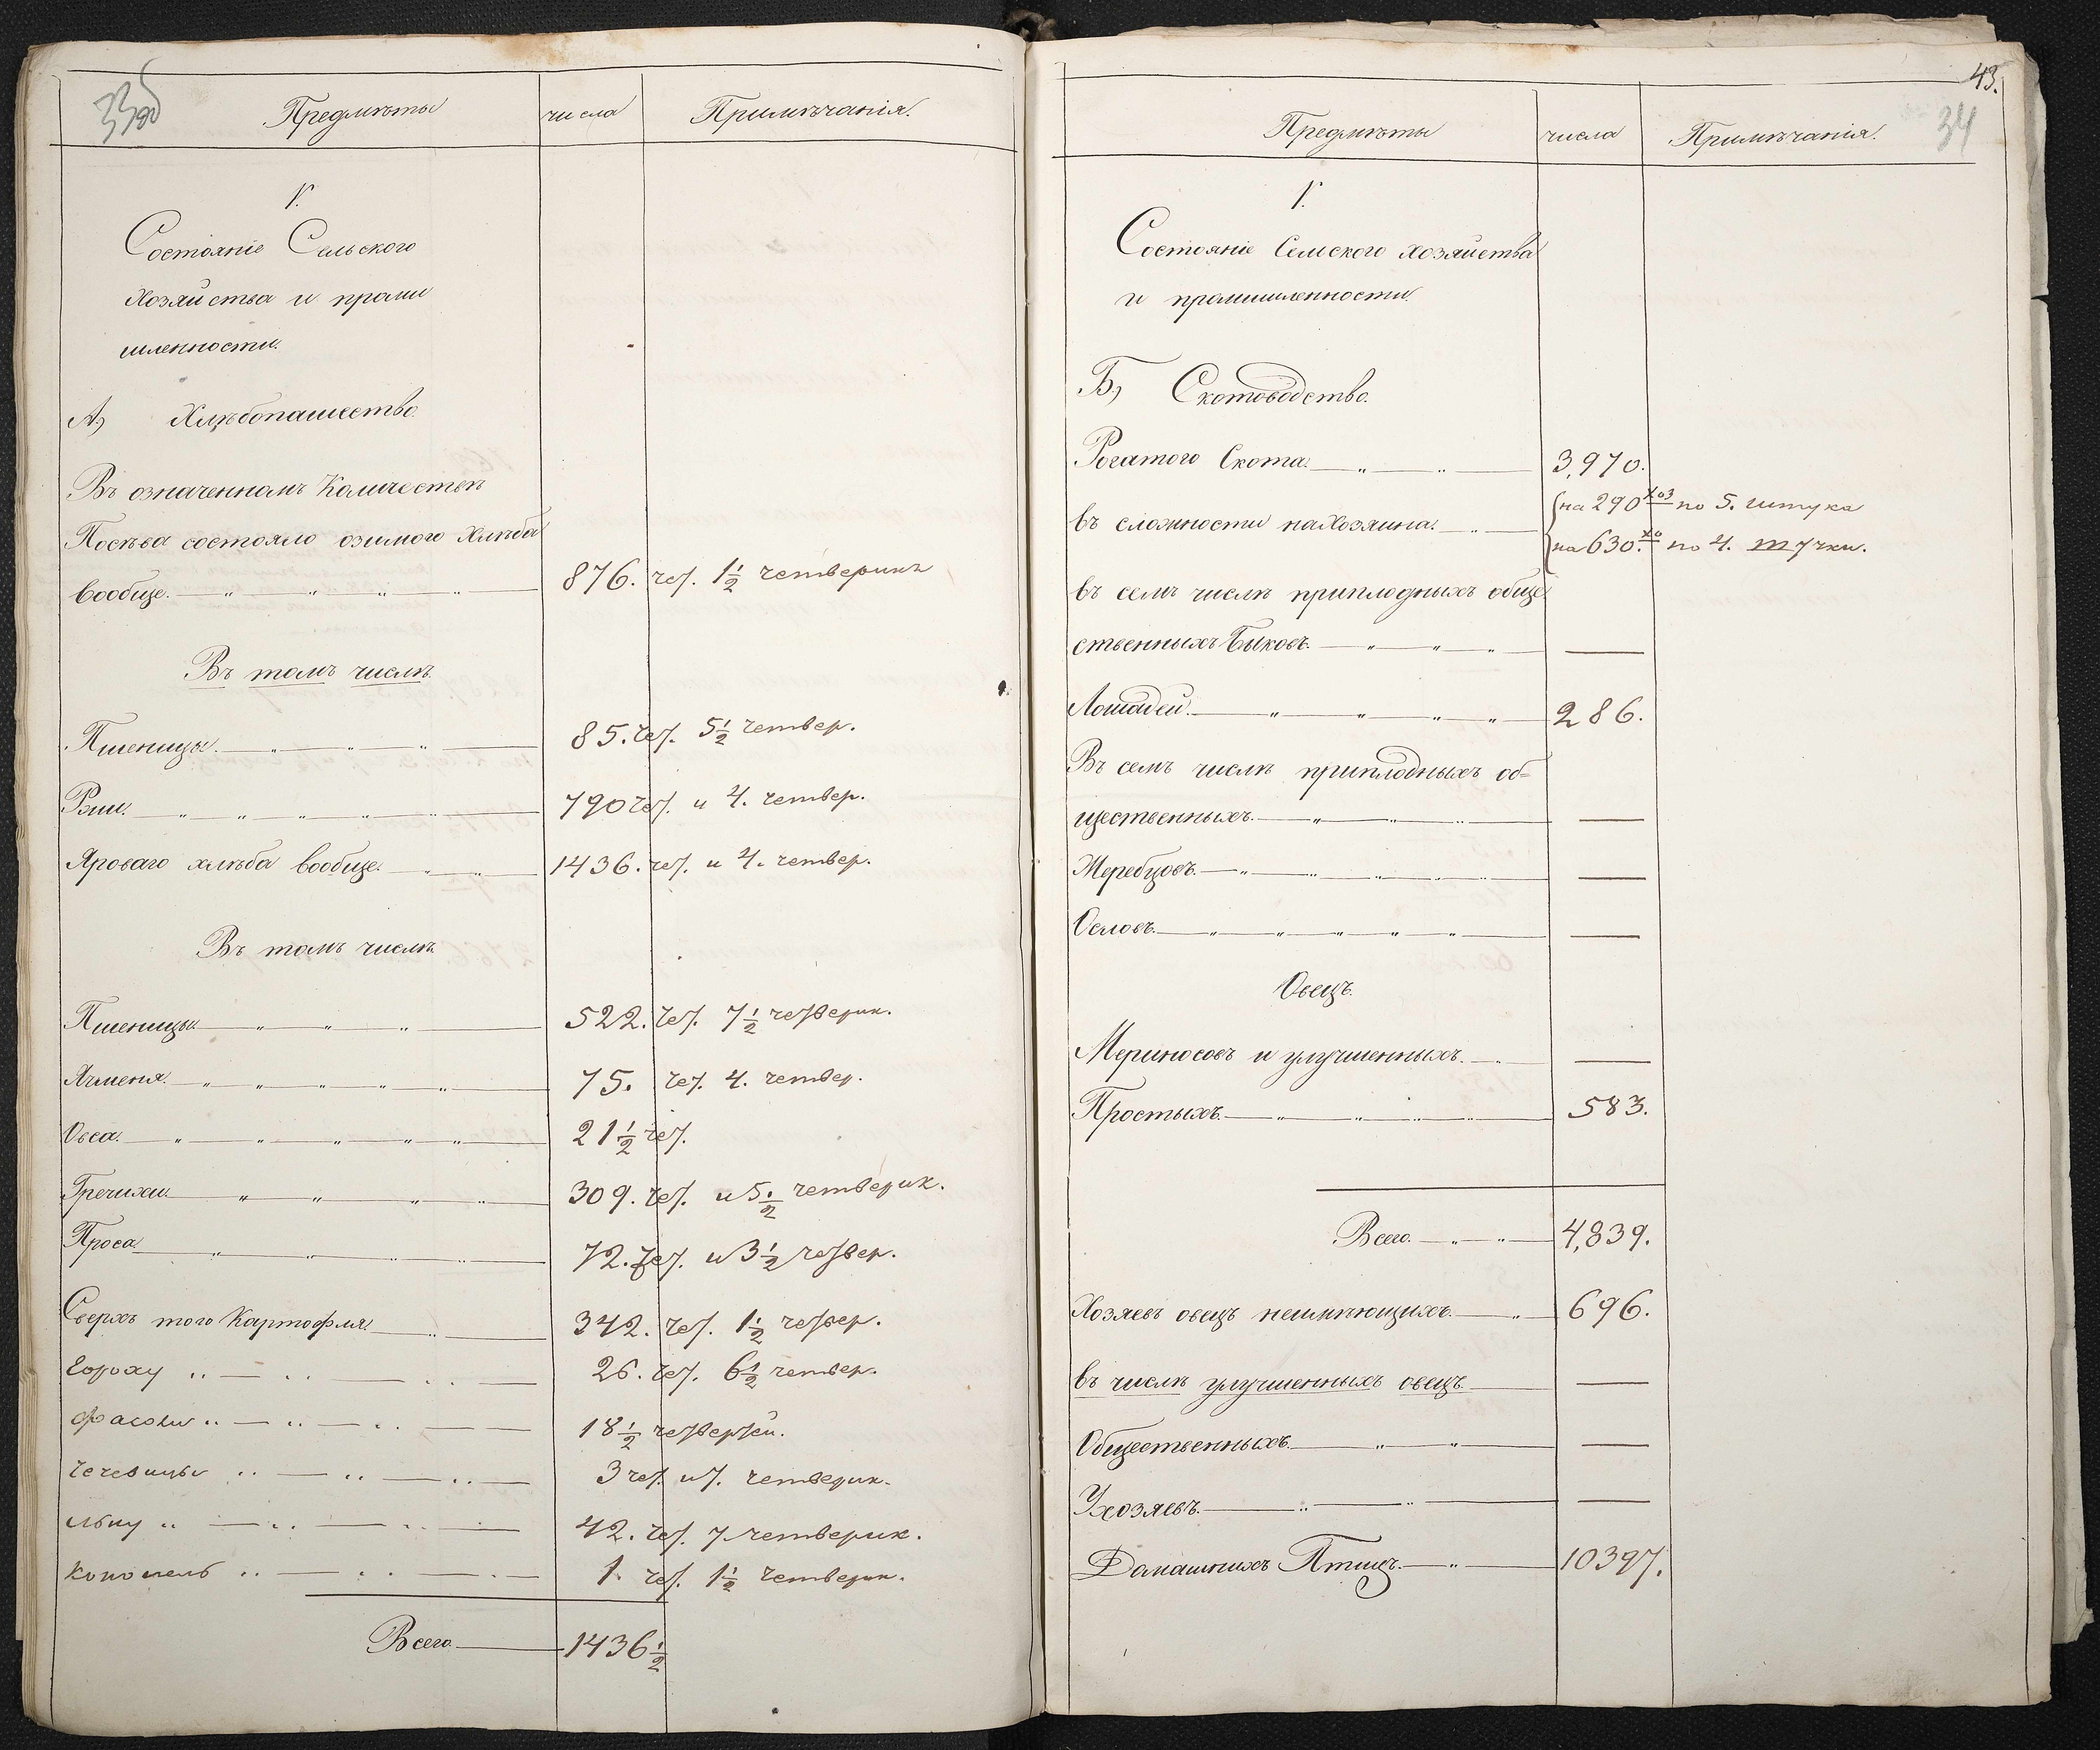 33об
Предмѣты числа Примѣчанія.
1.
Состояніе Сельского
Хозяйства и промы
шленности.
А) Хлѣбопашество.
Въ означенномъ Количествѣ
Посѣва состояло озимого Хлѣба
вообще. — „ — „ — „ — „ — 876. чет. 1½ четверика
Въ томъ числѣ.
Пшеницы. — „ — „ — „ — 85. чет. 5½ четвер.
Ржи. — „ — „ — „ — „ — „ — 790 чет. и 4. четвер.
Яроваго хлѣба вообще. — „ — „ — 1436. чет. и 4. четвер.
Въ томъ числѣ
Пшеницы — „ — „ — „ — 522. чет. 7½ четверик.
Ячменя. — „ — „ — „ — „ — „ — 75. чет. 4. четвер.
Овса. — „ — „ — „ — „ — „ — 21½ чет.
Гречихи. — „ — „ — „ — „ — 309. чет. и 5½ четверик.
Проса — „ — „ — „ — „ — 72. чет. и 3½ четвер.
Сверхъ того Картофля. — „ — 342. чет. 1½ четвер.
Гороху „ — „ — „ — 26. чет. 6½ четвер.
фасоли „ — „ — „ — 18½ четвертей.
Чечевицы „ — „ — „ — 3 чет. и 7. четверик.
льну „ — „ — „ — „ — 42. чет. 7 четверик.
конопель „ — „ — „ — 1. чет. 1½ четверик.
Всего. — 1436½
43.
34
Предмѣты числа Примѣчанія.
1.
Состояніе Селского хозяйства
и промышленности.
Б) Скотоводство.
Рогатого Скота. — „ — „ — 3,970.
въ сложности на Хозяина. — „ — {на 290 хоз по 5. штука
{на 630. хо по 4. штучки.
въ семъ числѣ приплодныхъ обще
ственныхъ Быковъ. — „ — „ — „ — —
Лошадей. — „ — „ — „ — „ — 286.
Въ семъ числѣ приплодныхъ об=
щественныхъ. — „ — „ — „ — —
Жеребцовъ. — „ — „ — „ — „ — „ — —
Ословъ. — „ — „ — „ — „ — „ — —
Овецъ.
Мериносовъ и улучшенныхъ. — „ — —
Простыхъ. — „ — „ — „ — „ — 583.
Всего. — „ — „ — 4,839.
Хозяевъ овецъ неимѣющихъ. — „ — 696.
въ числѣ улучшенныхъ овецъ. — —
Общественныхъ. — „ — „ — —
У хозяевъ. — „ — „ — —
Домашнихъ Птицъ. — „ — 10397.